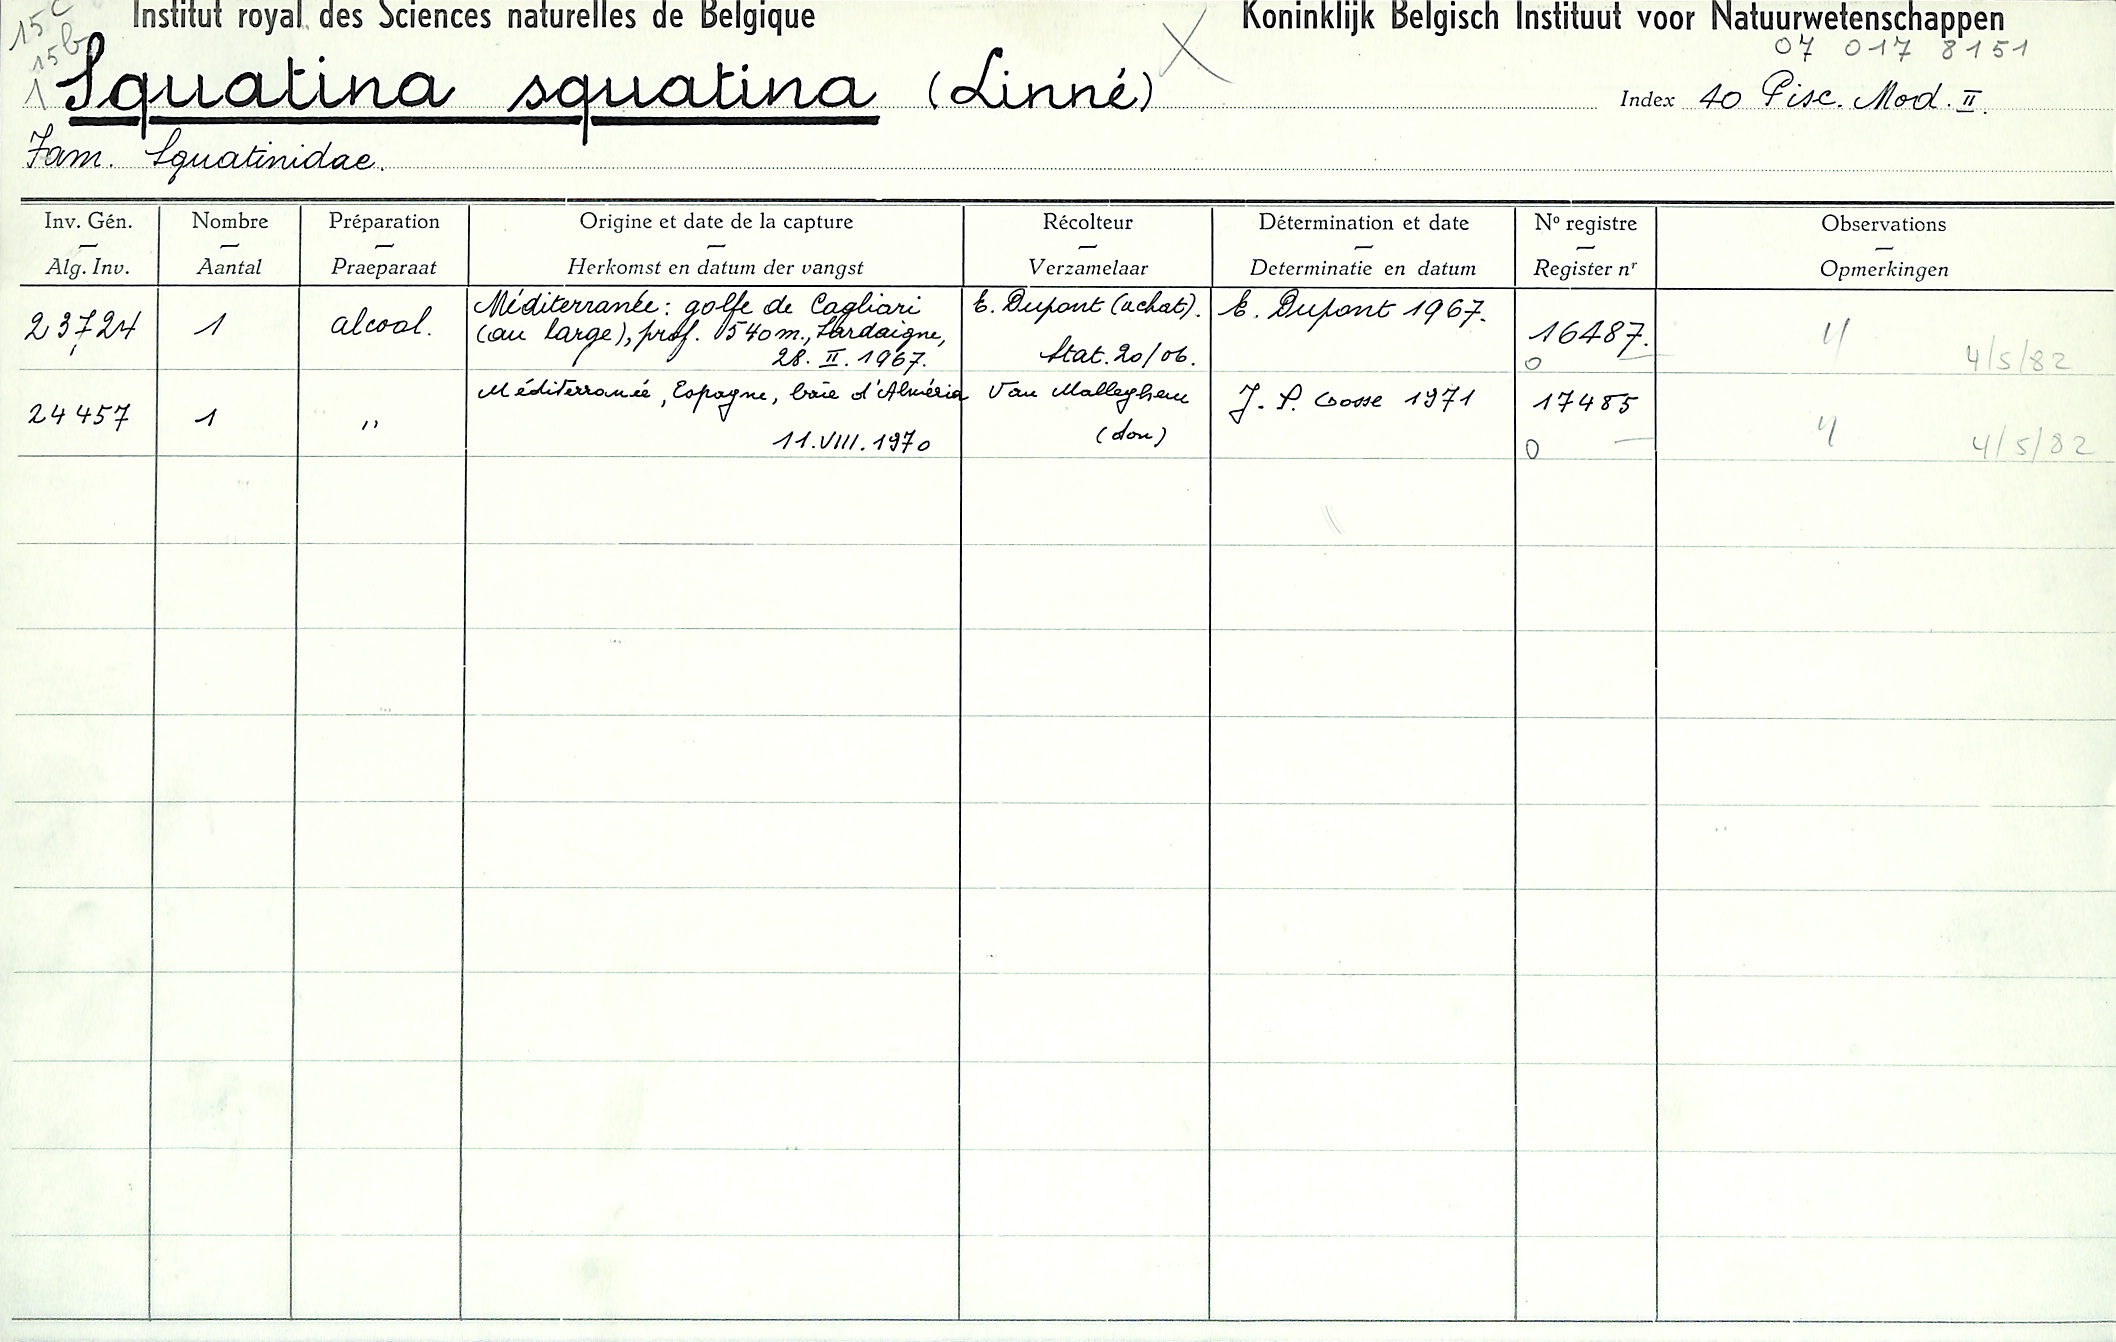 15c
Institut royal des Sciences naturelles de Belgique
Koninklijk Belgisch Instituut voor Natuurwetenschappen
15b
07 017 8151
1 Squatina squatina (Linné)
Index 40 Pisc. Mod. II.
Fam. Squatinidae.
Inv. Gén. Nombre Préparation Origine et date de la capture Récolteur Détermination et date Nº registre Observations
Alg. Inv. Aantal Praeparaat Herkomst en datum der vangst Verzamelaar Determinatie en datum Register nr Opmerkingen
23724 1 alcool.
Méditerranée: golfe de Cagliari
(au large), prof. 540 m., Sardaigne,
28. II. 1967.
E. Dupont (achat).
Stat. 20/06.
E. Dupont 1967.
16487.
0
4/5/82
24457 1 "
Méditerranée, Espagne, baie d'Alméria
11.VIII.1970
Van Malleghem
(don)
J. P. Gosse 1971
17485
0
4/5/82